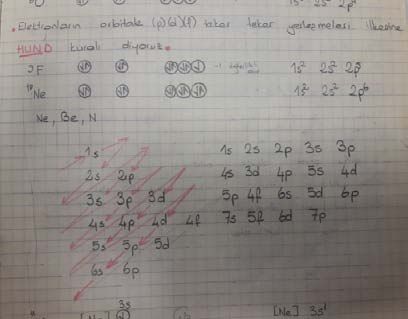 1s² 2s² 2p⁴
• Elektronların orbitale (p)(d)(f) teker teker yerleşmelesi ilkesine
HUND kuralı diyoruz.
₉F 1s² 2s² 2p⁵
¹⁰Ne 1s² 2s² 2p⁶
Ne, Be, N
1s
2s 2p
3s 3p 3d
4s 4p 4d 4f
5s 5p 5d
6s 6p
1s 2s 2p 3s 3p
4s 3d 4p 5s 4d
5p 4f 6s 5d 6p
7s 5f 6d 7p
3s
[Ne] [Ne] 3s¹